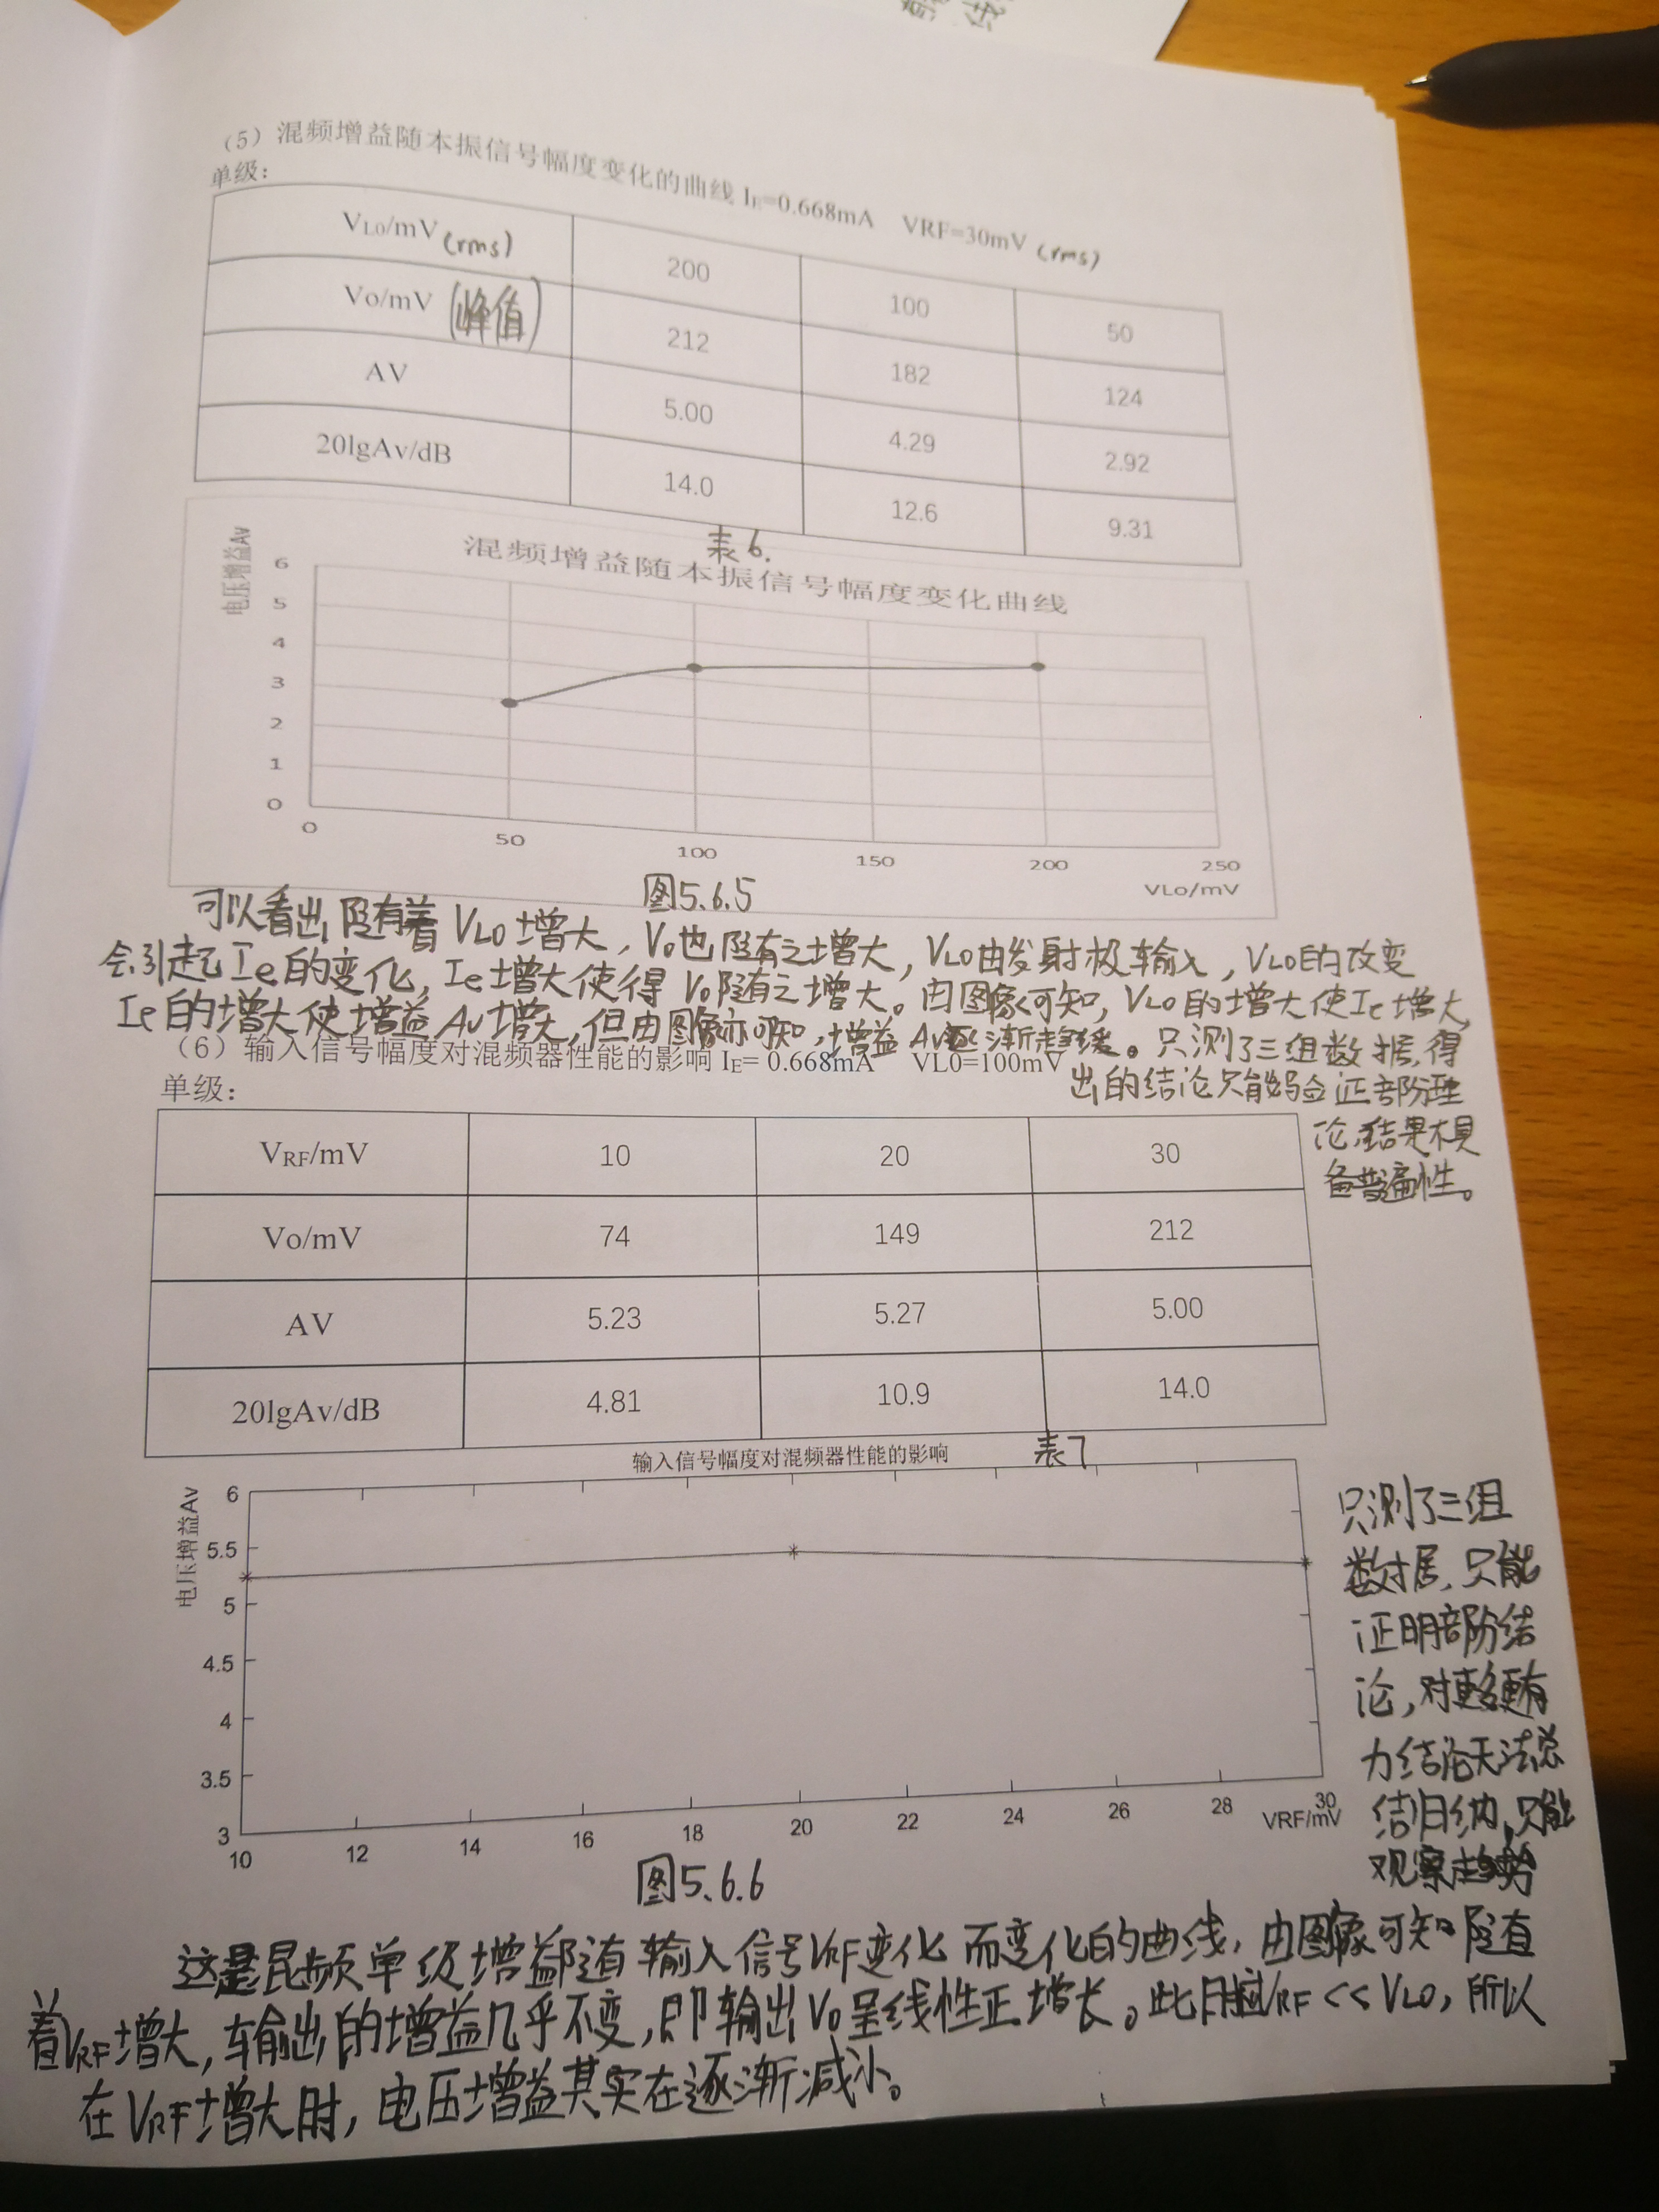 (5) 混频增益随本振信号幅度变化的曲线 IE=0.668mA VRF=30mV (rms)
单级:
VL0/mV (rms) 200 100 50
Vo/mV (峰值) 212 182 124
AV 5.00 4.29 2.92
20lgAv/dB 14.0 12.6 9.31
表6.
混频增益随本振信号幅度变化曲线
电压增益Av
6
5
4
3
2
1
0
0 50 100 150 200 250
VLo/mV
图5.6.5
可以看出,随着VLO增大,Vo也随之增大,VLO由发射极输入,VLO的改变
会引起Ie的变化,Ie增大使得Vo随之增大。由图像可知,VLO的增大使Ie增大,
Ie的增大使增益Av增大,但由图像亦可知,增益Av逐渐趋缓。只测了三组数据,得
出的结论只能够验证部份理
论,结果不具
备普遍性。
(6) 输入信号幅度对混频器性能的影响 IE= 0.668mA VL0=100mV
单级:
VRF/mV 10 20 30
Vo/mV 74 149 212
AV 5.23 5.27 5.00
20lgAv/dB 4.81 10.9 14.0
表7
输入信号幅度对混频器性能的影响
电压增益Av
6
5.5
5
4.5
4
3.5
3
10 12 14 16 18 20 22 24 26 28 30
VRF/mV
图5.6.6
只测了三组
数据,只能
证明部份结
论,对更多更有
力结论无法总
结归纳,只能
观察趋势
这是混频单级增益随输入信号VRF变化而变化的曲线,由图像可知随
着VRF增大,输出的增益几乎不变,即输出Vo呈线性正增长。此时VRF<<VLO,所以
在VRF增大时,电压增益其实在逐渐减小。